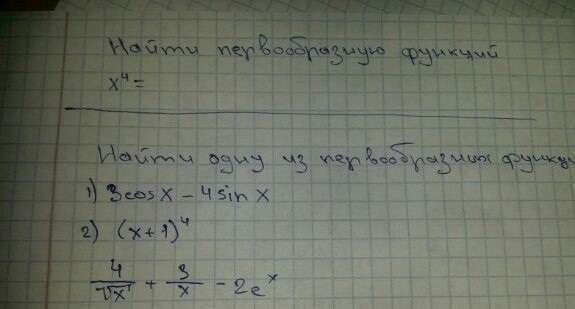 Найти первообразную функций
x⁴ =
Найти одну из первообразных функци
1) 3cosx – 4sin x
2) (x+1)⁴
4/√x + 3/x – 2eˣ